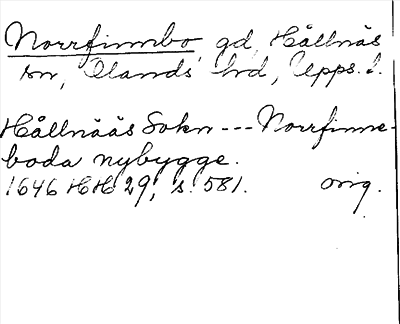 Norrfinnbo, gd, Hållnäs
sn, Olands hd, Upps. l.
Hållnääs Sokn --- Norrfinne-
boda nybygge.
1646 HH 29, s. 581. orig.